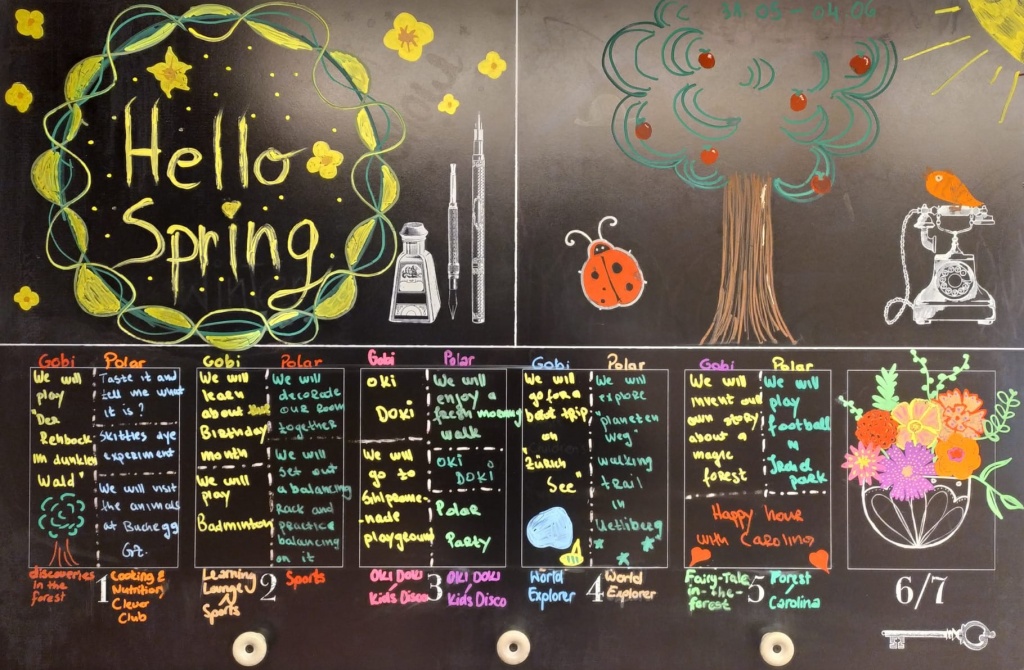 Hello
Spring
31.03 - 04.04
Gobi
We will
play
"Der
Rehbock
im dunklen
Wald"
Polar
Taste it and
tell me what
it is?
skittles dye
experiment
We will visit
the animals
at Buchegg
GZ.
discoveries
in the
forest
1
Cooking &
Nutrition
Clever
Club
Gobi
We will
learn
about
Birthday
month
We will
play
Badminton
Polar
We will
decorade
our room
together
We will
set out
a balancing
Rack and
practice
balancing
on it
Learning
Lounge
Sports
2
Sports
Gobi
OKI
DOKI
We will
go to
Sihlprome-
nade
playground
Polar
We will
enjoy a
fresh morning
walk
OKI
DOKI
Polar
Party
OKI DOKI
Kids Disco
3
OKI DOKI
Kids Disco
Gobi
We will
go for a
boat trip
on
"Zürich
See"
Polar
We will
explore
"planeten
weg"
walking
trail
in
Uetliberg
World
Explorer
4
World
Explorer
Gobi
We will
invent our
own story
about a
magic
forest
Polar
We will
play
football
in
Irchel
park
Happy hour
with Carolina
Fairy-Tale
in-the-
forest
5
Forest
Carolina
6/7